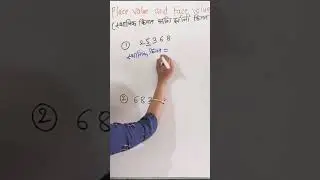 Place value and Face value
(स्थानिक किंमत आणि दर्शनी किंमत
① 2 5 3 6 8
स्थानिक किंमत =
② 6 8 3
②